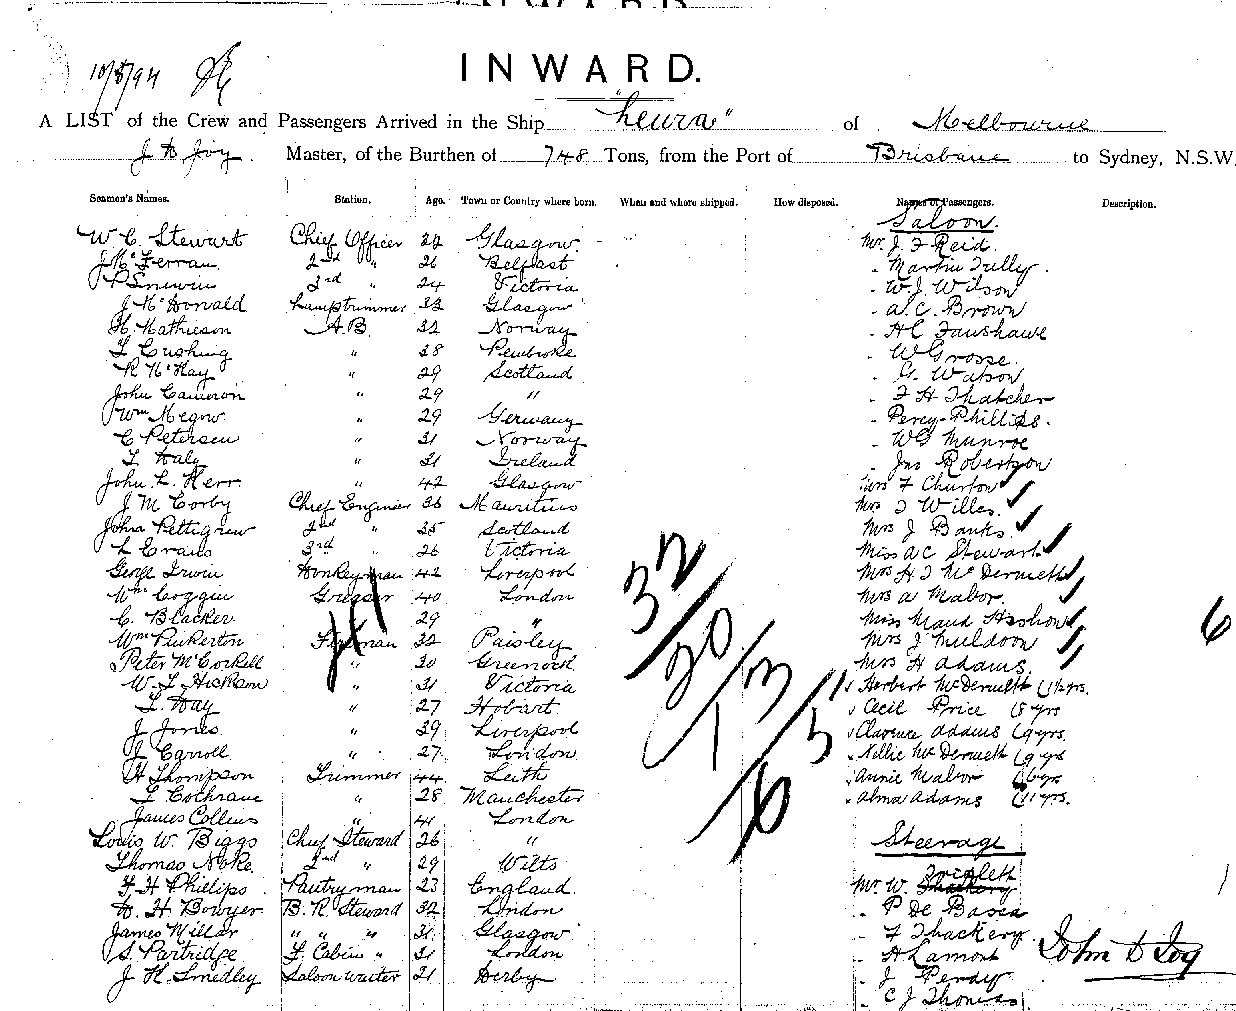 INWARD.
10/8/94
A LIST of the Crew and Passengers Arrived in the Ship "Leura" of Melbourne
J D Joy. Master, of the Burthen of 748 Tons, from the Port of Brisbane to Sydney, N.S.W.
Seamen's Names. Station. Age. Town or Country where born. When and where shipped. How disposed. Names of Passengers. Description.
Saloon.
W. C. Stewart Chief Officer Glasgow Mr. J. F Reid.
J McFerran 2nd " 26 Belfast " Martin Tully.
P 3rd " 24 Victoria " W. J. Wilson
J McDonald Lamptrimmer 33 Glasgow " A. C. Brown
H. Mathieson A.B. 32 Norway " H C Fanshawe
T Cushing " 28 Pembroke " W Grosse.
R McKay " 29 Scotland " G. Watson
John Cameron " 29 " " F H Thatcher
Wm Megow " 29 Germany " Percy Phillips.
C Petersen " 31 Norway " W G Munroe
T Daly " 31 Ireland " Jas Robertson
John L. Kerr " 42 Glasgow Mrs F Churton
J. M Corby Chief Engineer 36 Mauritius Mrs J Willes
John Pettigrew 2nd " 35 Scotland Mrs J Banks.
L Evans 3rd " 26 Victoria Miss A C Stewart
George Irwin Donkeyman 42 Liverpool Mrs H J McDermett
Wm Coggin Greaser 40 London Mrs A Mabor
C. Blacker " 29 " Miss Maud
Wm Pinkerton Fireman 32 Paisley Mrs J Muldoon
Peter McCorkell " 30 Greenock Mrs H Adams.
W. J. Hickson " 31 Victoria " Herbert McDermett (1½ yrs.
T. Day " 27 Hobart " Cecil Price (8 yrs
J Jones " 39 Liverpool " Clarence Adams (9 yrs.
J Carroll " 27 London " Nellie McDermett (9 yrs
H Thompson Trimmer 44 Leith " Annie Mabor (6 yrs
T Cochrane " 28 Manchester " Alma Adams (11 yrs.
James Collins " 41 London
Louis W. Biggs Chief Steward 26 " Steerage
Thomas Noke. 2nd " 29 Wilts
F. H Phillips Pantryman 23 England. Mr. W.
D. H. Bowyer B. R. Steward 32 London " P De Basea
James Millar " " " 31 Glasgow " F Thackery
S. Partridge F. Cabin " 31 London " H Lamont
J. H. Smedley Saloon Waiter 21 Derby " J Perdy
" C J Thomas
John D Joy
32
20
1 3
5
6
41
6